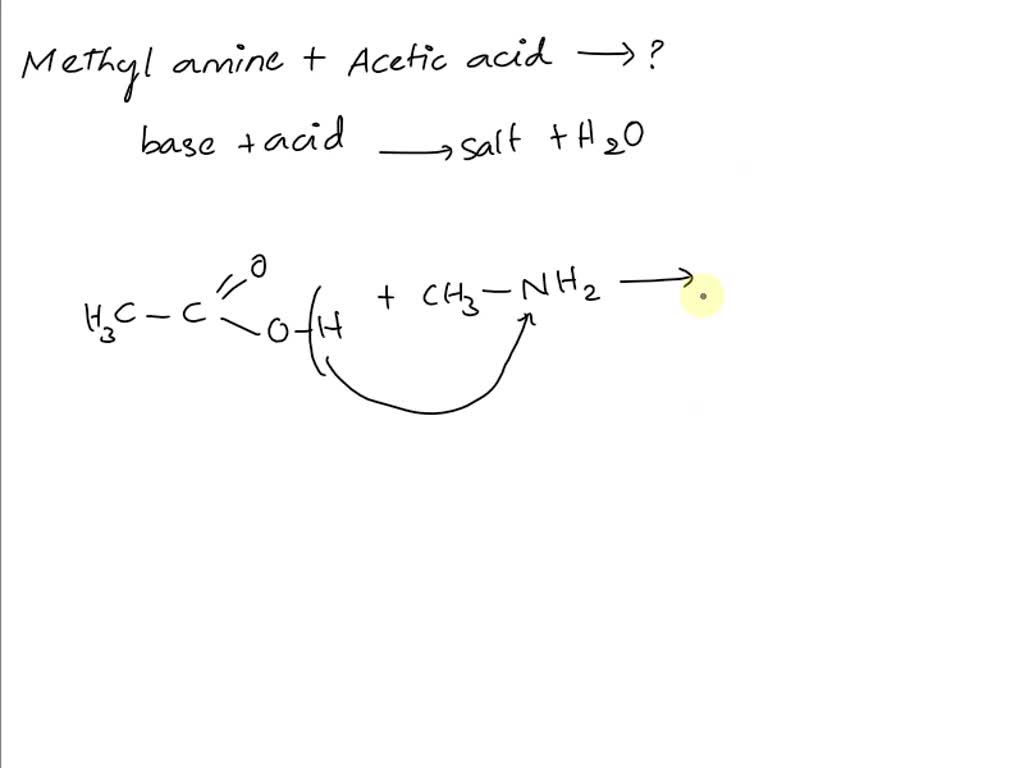 Methyl amine + Acetic acid → ?
base + acid → salt + H2O
H3C - C = O - O - H + CH3 - NH2 →